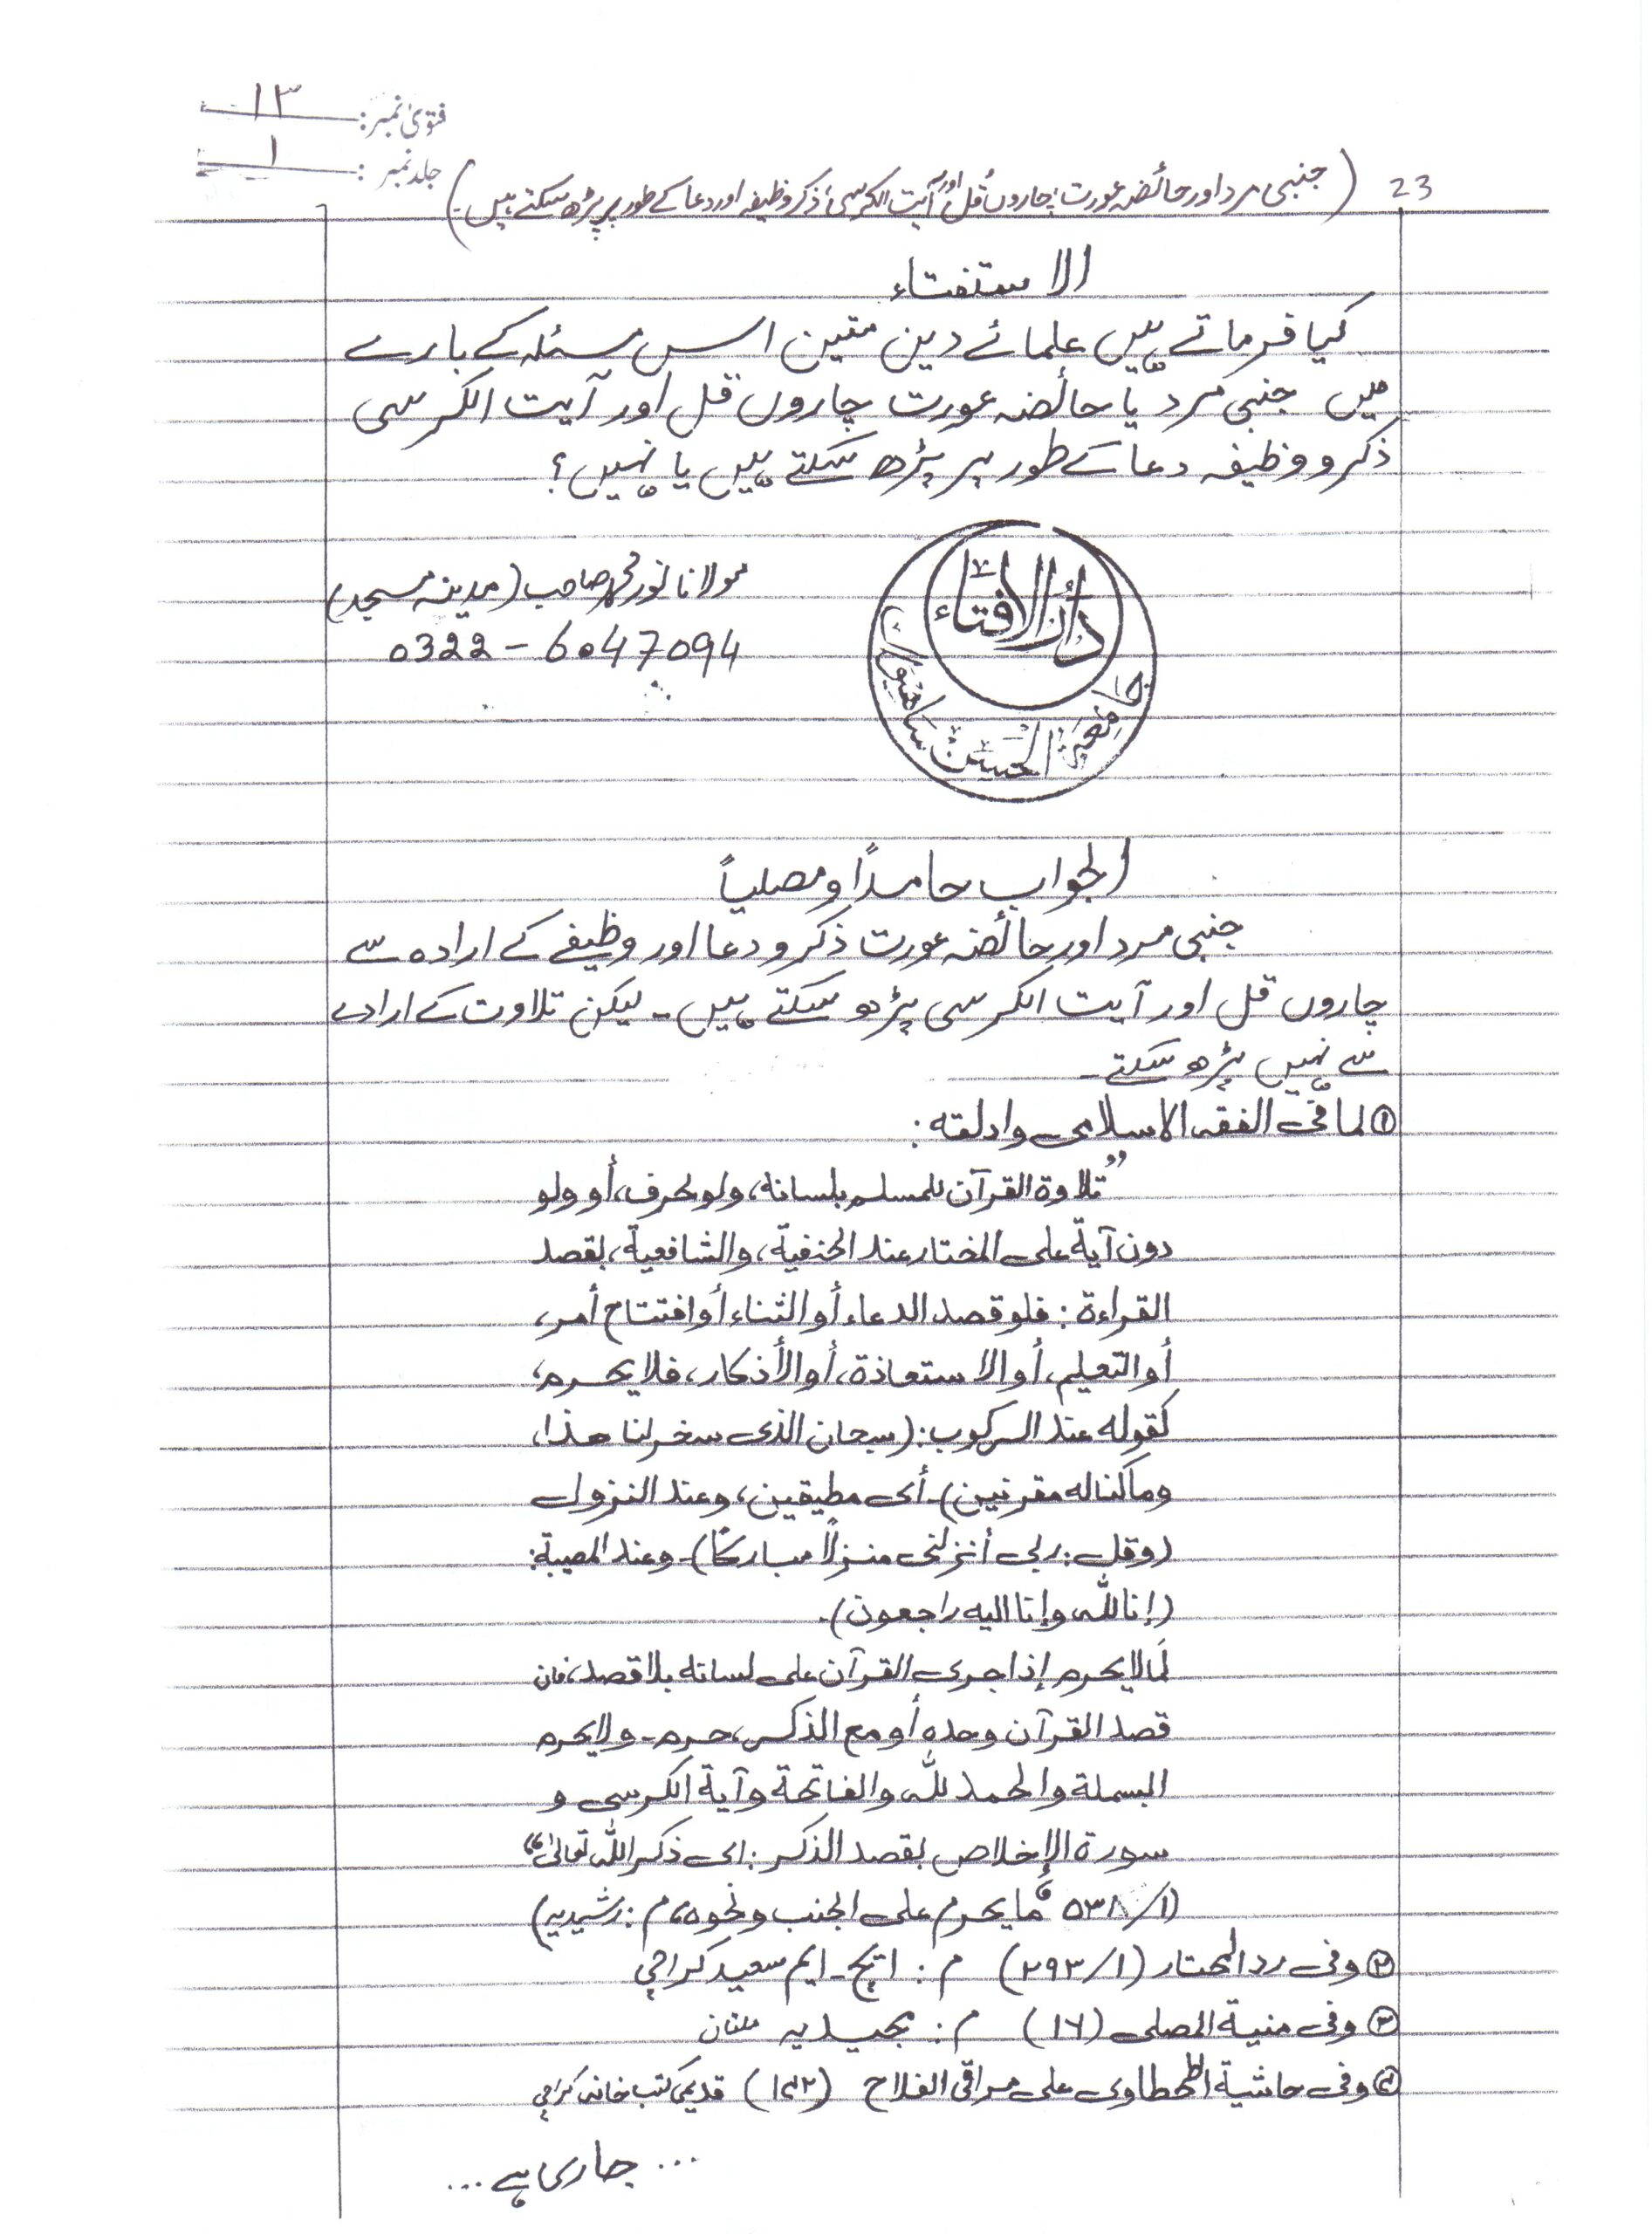 فتویٰ نمبر: ۱۳
جلد نمبر: ۱
23 (جنبی مرد اور حائضہ عورت چاروں قُل اور آیت الکرسی، ذکر وظیفہ اور دعا کے طور پر پڑھ سکتے ہیں۔)
الاستفتاء
کیا فرماتے ہیں علمائے دین متین اس مسئلہ کے بارے
میں جنبی مرد یا حائضہ عورت چاروں قل اور آیت الکرسی
ذکر و وظیفہ دعا کے طور پر پڑھ سکتے ہیں یا نہیں؟
مولانا نور محمد صاحب (مدینہ مسجد)
0322 - 6047094
دار الافتاء
جامعۃ الحسن ساھیوال
الجواب حامداً ومصلیاً
جنبی مرد اور حائضہ عورت ذکر و دعا اور وظیفے کے ارادہ سے
چاروں قل اور آیت الکرسی پڑھ سکتے ہیں۔ لیکن تلاوت کے ارادے
سے نہیں پڑھ سکتے۔
① لما فی الفقہ الاسلامی وادلته:
”تلاوة القرآن للمسلم بلسانه، ولو بحرف، أو ولو
دون آية على المختار عند الحنفية، والشافعية، بقصد
القراءة: فلو قصد الدعاء أو الثناء أو افتتاح أمر،
أو التعليم، أو الاستعاذة، أو الأذكار، فلا يحرم،
كقوله عند الركوب: (سبحان الذی سخر لنا هذا،
وما كنا له مقرنين)۔ أی مطيقين، وعند النزول
(وقل: ربی أنزلنی منزلاً مبارکًا)۔ وعند المصيبة:
(إنا لله وإنا اليه راجعون)۔
كما لا يحرم إذا جرى القرآن على لسانه بلا قصد، فان
قصد القرآن وحده أو مع الذكر، حرم۔ ولا يحرم
البسملة والحمد لله والفاتحة وآية الكرسی و
سورة الإخلاص بقصد الذكر: ای ذكر الله تعالیٰ“
(۱/ ۵۳۸ ما يحرم على الجنب ونحوه، م: رشیدیہ)
② وفی رد المحتار (۱/ ۲۹۳) م: ایچ۔ ایم سعید کراچی
③ وفی منیة المصلی (۱۶) م: مجیدیہ ملتان
④ وفی حاشیة الطحطاوی على مراقی الفلاح (۱۴۲) قدیمی کتب خانہ کراچی
... جاری ہے ...